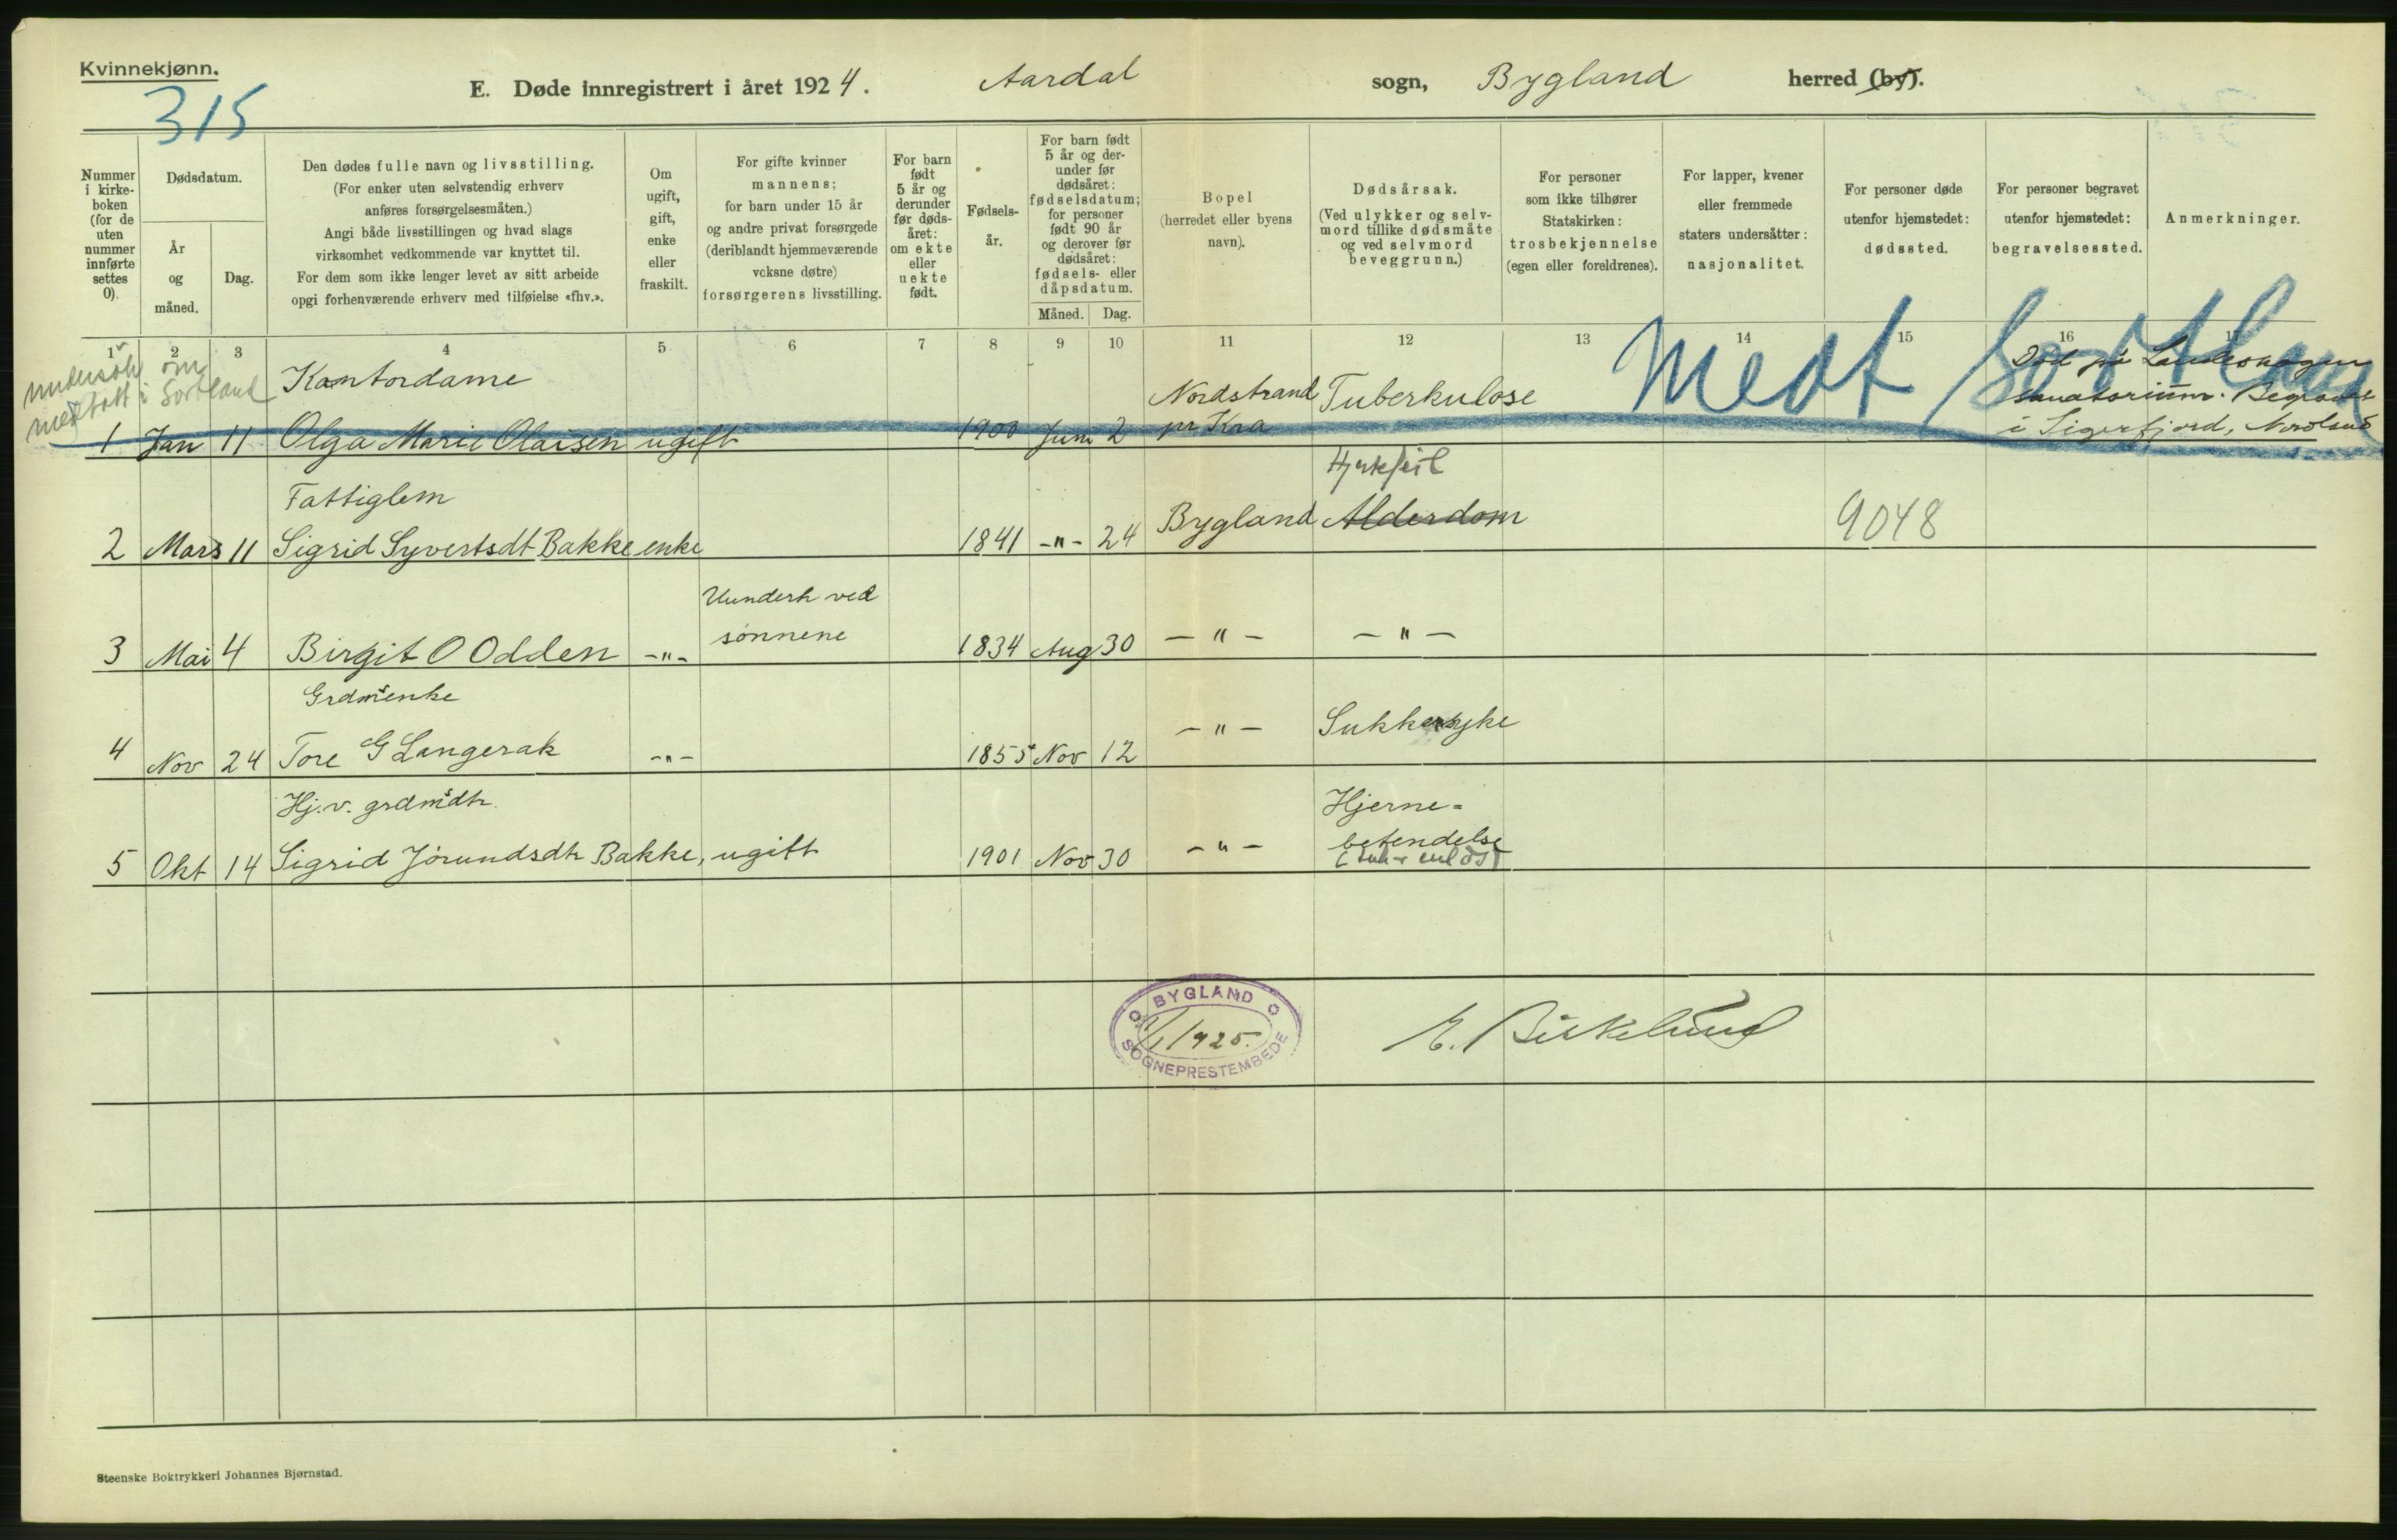 Kvinnekjønn.
315
E. Døde innregistrert i året 1924. Aardal sogn, Bygland herred (by).
Nummer i kirkeboken (for de uten nummer innførte settes 0).
Dødsdatum.
År og måned.
Dag.
Den dødes fulle navn og livsstilling.
(For enker uten selvstendig erhverv
anføres forsørgelsesmåten.)
Angi både livsstillingen og hvad slags
virksomhet vedkommende var knyttet til.
For dem som ikke lenger levet av sitt arbeide
opgi forhenværende erhverv med tilføielse «fhv.».
Om ugift, gift, enke eller fraskilt.
For gifte kvinner
mannens;
for barn under 15 år
og andre privat forsørgede
(deriblandt hjemmeværende
voksne døtre)
forsørgerens livsstilling.
For barn født 5 år og derunder før dødsåret: om ekte eller uekte født.
Fødselsår.
For barn født 5 år og derunder før dødsåret: fødselsdatum; for personer født 90 år og derover før dødsåret: fødsels- eller dåpsdatum.
Måned. Dag.
Bopel
(herredet eller byens
navn).
Dødsårsak.
(Ved ulykker og selvmord tillike dødsmåte
og ved selvmord
beveggrunn.)
For personer
som ikke tilhører
Statskirken:
trosbekjennelse
(egen eller foreldrenes).
For lapper, kvener
eller fremmede
staters undersåtter:
nasjonalitet.
For personer døde
utenfor hjemstedet:
dødssted.
For personer begravet
utenfor hjemstedet:
begravelsessted.
Anmerkninger.
1 2 3 4 5 6 7 8 9 10 11 12 13 14 15 16 17
undersøk om
medtatt i Sortland
Medt Sortland
Kontordame
1 Jan 11 Olga Marie Olaisen ugift 1900 Juni 2 Nordstrand pr Kra Tuberkulose
Død på Landeskogen
sanatorium. Begravet
i Sigerfjord, Nordland
Fattiglem
Hjertefeil
2 Mars 11 Sigrid Syvertsdt Bakke enke 1841 -"- 24 Bygland Alderdom 9048
Underh ved
sønnene
3 Mai 4 Birgit O Odden -"- 1834 Aug 30 -"- -"-
Grdmsenke
4 Nov 24 Tore G Langerak -"- 1855 Nov 12 -"- Sukkersyke
Hj. v. grdmsdtr.
Hjerne-
5 Okt 14 Sigrid Jørundsdtr Bakke, ugift 1901 Nov 30 -"- betendelse
BYGLAND
1/1 1925.
SOGNEPRESTEMBEDE
E. Birkelund
Steenske Boktrykkeri Johannes Bjørnstad.